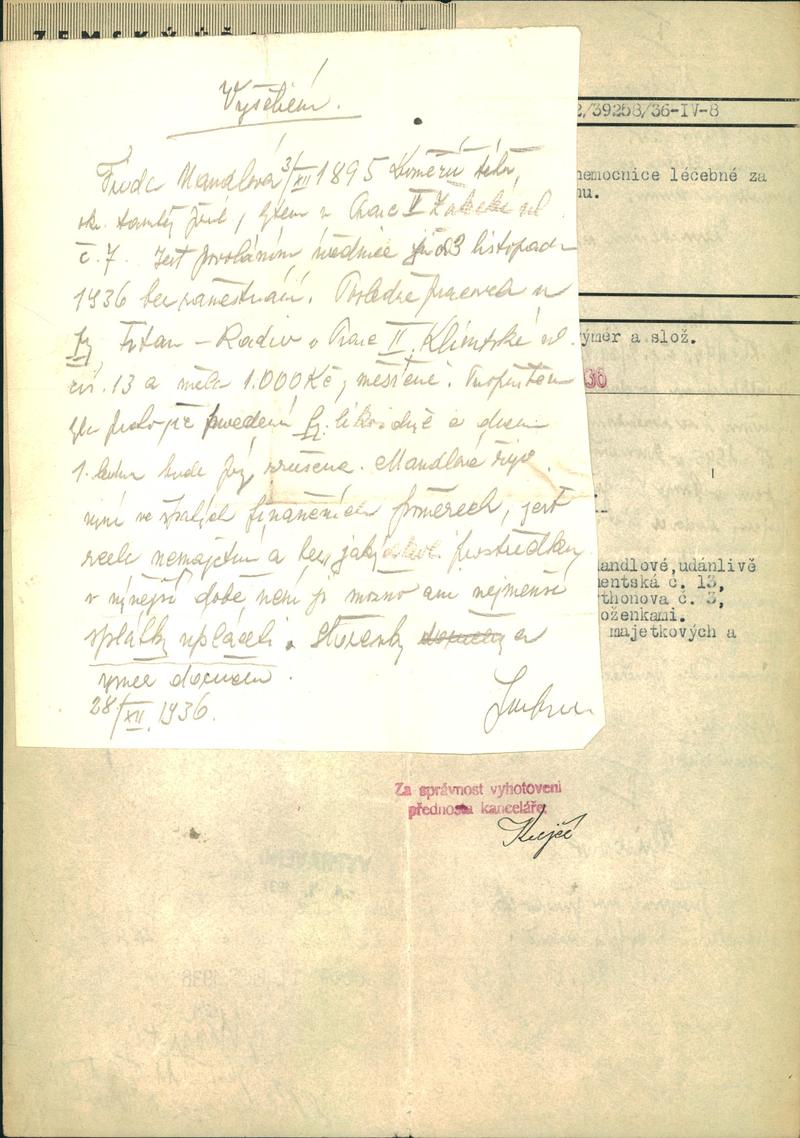 ZEMSKÝ ÚŘ
2/39258/36-IV-8
nemocnice léčebné za
nu.
ýměr a slož.
36
Mandlové, udánlivě
mentská č. 13,
rthonova č. 3,
oženkami.
majetkových a
Vyšetření.
Frieda Mandlová 3/XII 1895
okr. tamtéž přísl., bytem v Praze II ul.
č. 7. Jest povoláním úřednice již od 3 listopadu
1936 bez zaměstnání. Posledně pracovala u
fy Titan - Radio v Praze II. Klimentské ul.
čís. 13 a měla 1.000 Kč, měsíčně.
uvedená fy. likviduje a dnem
1. ledna bude fy, zrušena. Mandlová žije
nyní ve špatných finančních poměrech, jest
zcela nemajetna a bez jakýchkoli prostředků,
v nynější době není jí možno ani nejmenší
splátky spláceti. Složenky a
výměr doručen.
28/XII. 1936.
Za správnost vyhotovení
přednosta kanceláře: